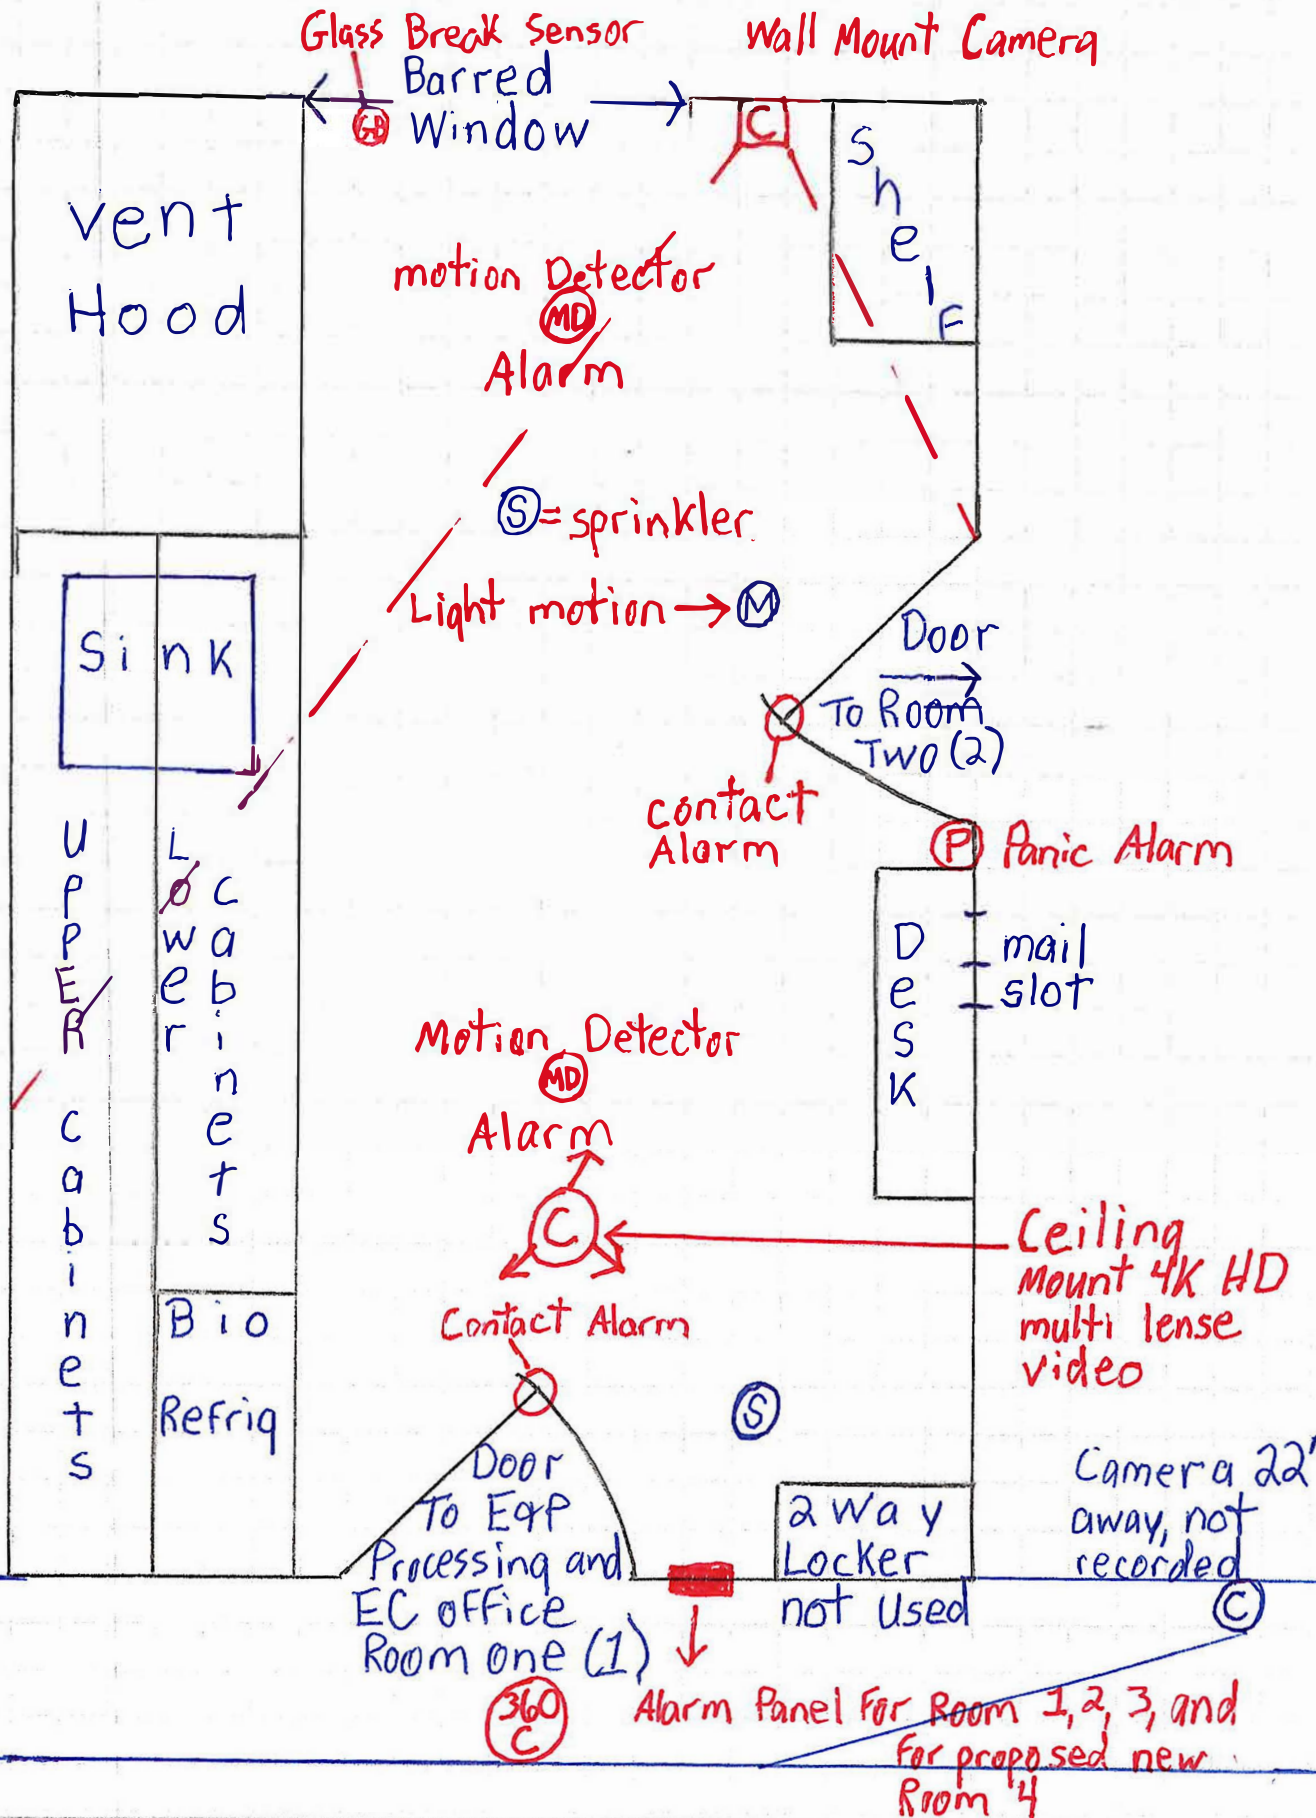 Glass Break Sensor
Wall Mount Camera
Barred
GB Window
C
Shelf
vent
Hood
motion Detector
MD
Alarm
S = sprinkler
Light motion → M
Sink
Door
To Room
Two (2)
contact
Alarm
P Panic Alarm
UPPER cabinets
Lower
cabinets
Desk
mail
slot
Motion Detector
MD
Alarm
C
Ceiling
Mount 4K HD
multi lense
video
Contact Alarm
Bio
Refrig
S
Door
To E&P
Processing and
EC office
Room one (1)
2 Way
Locker
not used
Camera 22'
away, not
recorded
C
360
C
Alarm Panel For Room 1, 2, 3, and
for proposed new
Room 4